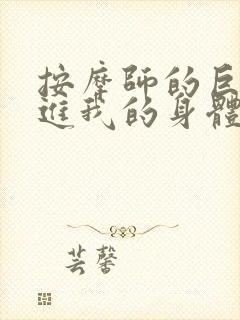 按摩師的巨
進我的身體
芸馨